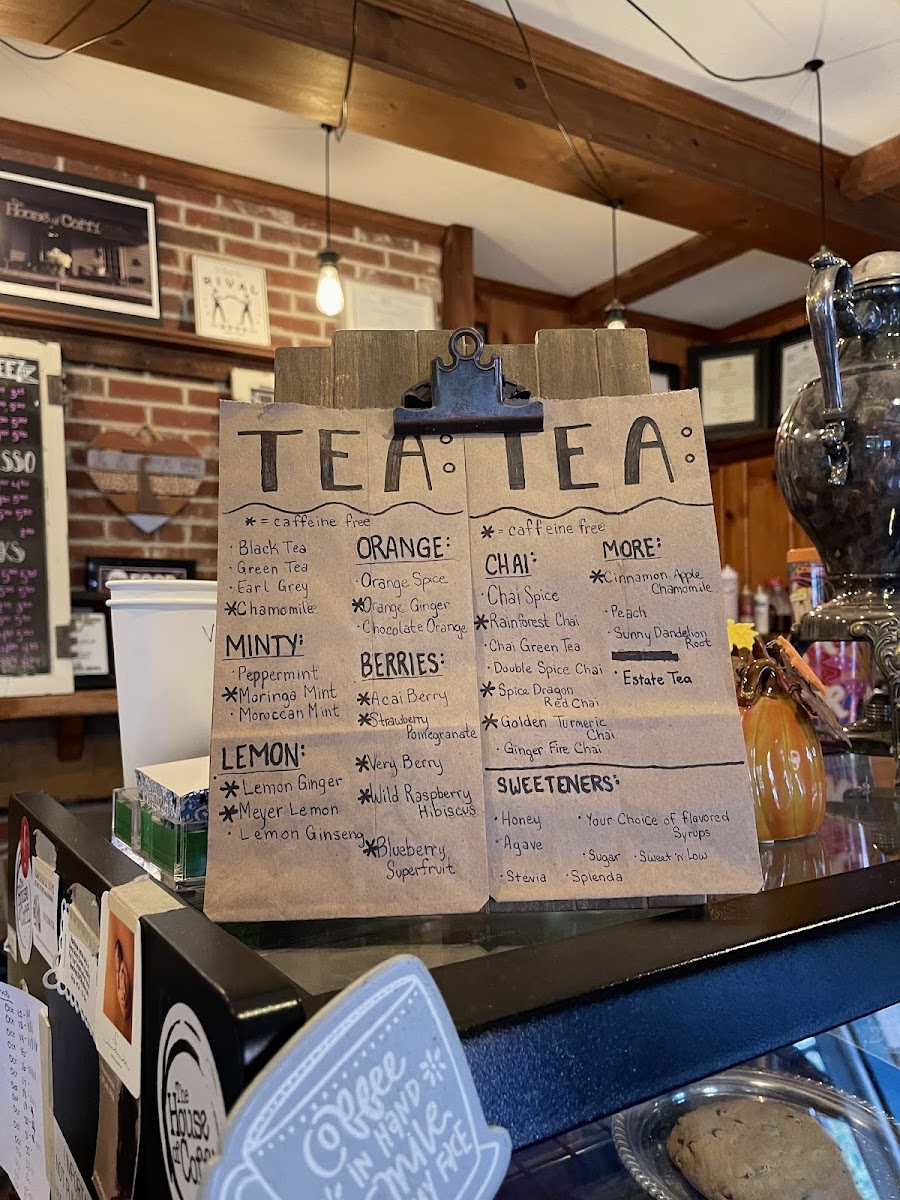 House of Coffee
RIVAL
TEA:
* = caffeine free
· Black Tea
· Green Tea
· Earl Grey
* Chamomile
MINTY:
· Peppermint
* Moringa Mint
· Moroccan Mint
LEMON:
* Lemon Ginger
* Meyer Lemon
· Lemon Ginseng
ORANGE:
· Orange Spice
* Orange Ginger
· Chocolate Orange
BERRIES:
* Acai Berry
* Strawberry
Pomegranate
* Very Berry
* Wild Raspberry
Hibiscus
* Blueberry
Superfruit
TEA:
* = caffeine free
CHAI:
· Chai Spice
* Rainforest Chai
· Chai Green Tea
· Double Spice Chai
* Spice Dragon
Red Chai
* Golden Turmeric
Chai
· Ginger Fire Chai
MORE:
* Cinnamon Apple
Chamomile
· Peach
· Sunny Dandelion
Root
· Estate Tea
SWEETENERS:
· Honey
· Agave
· Stevia
· Splenda
· Your Choice of flavored
Syrups
· Sugar
· Sweet 'n' Low
The
House
of Coffee
Coffee
IN HAND